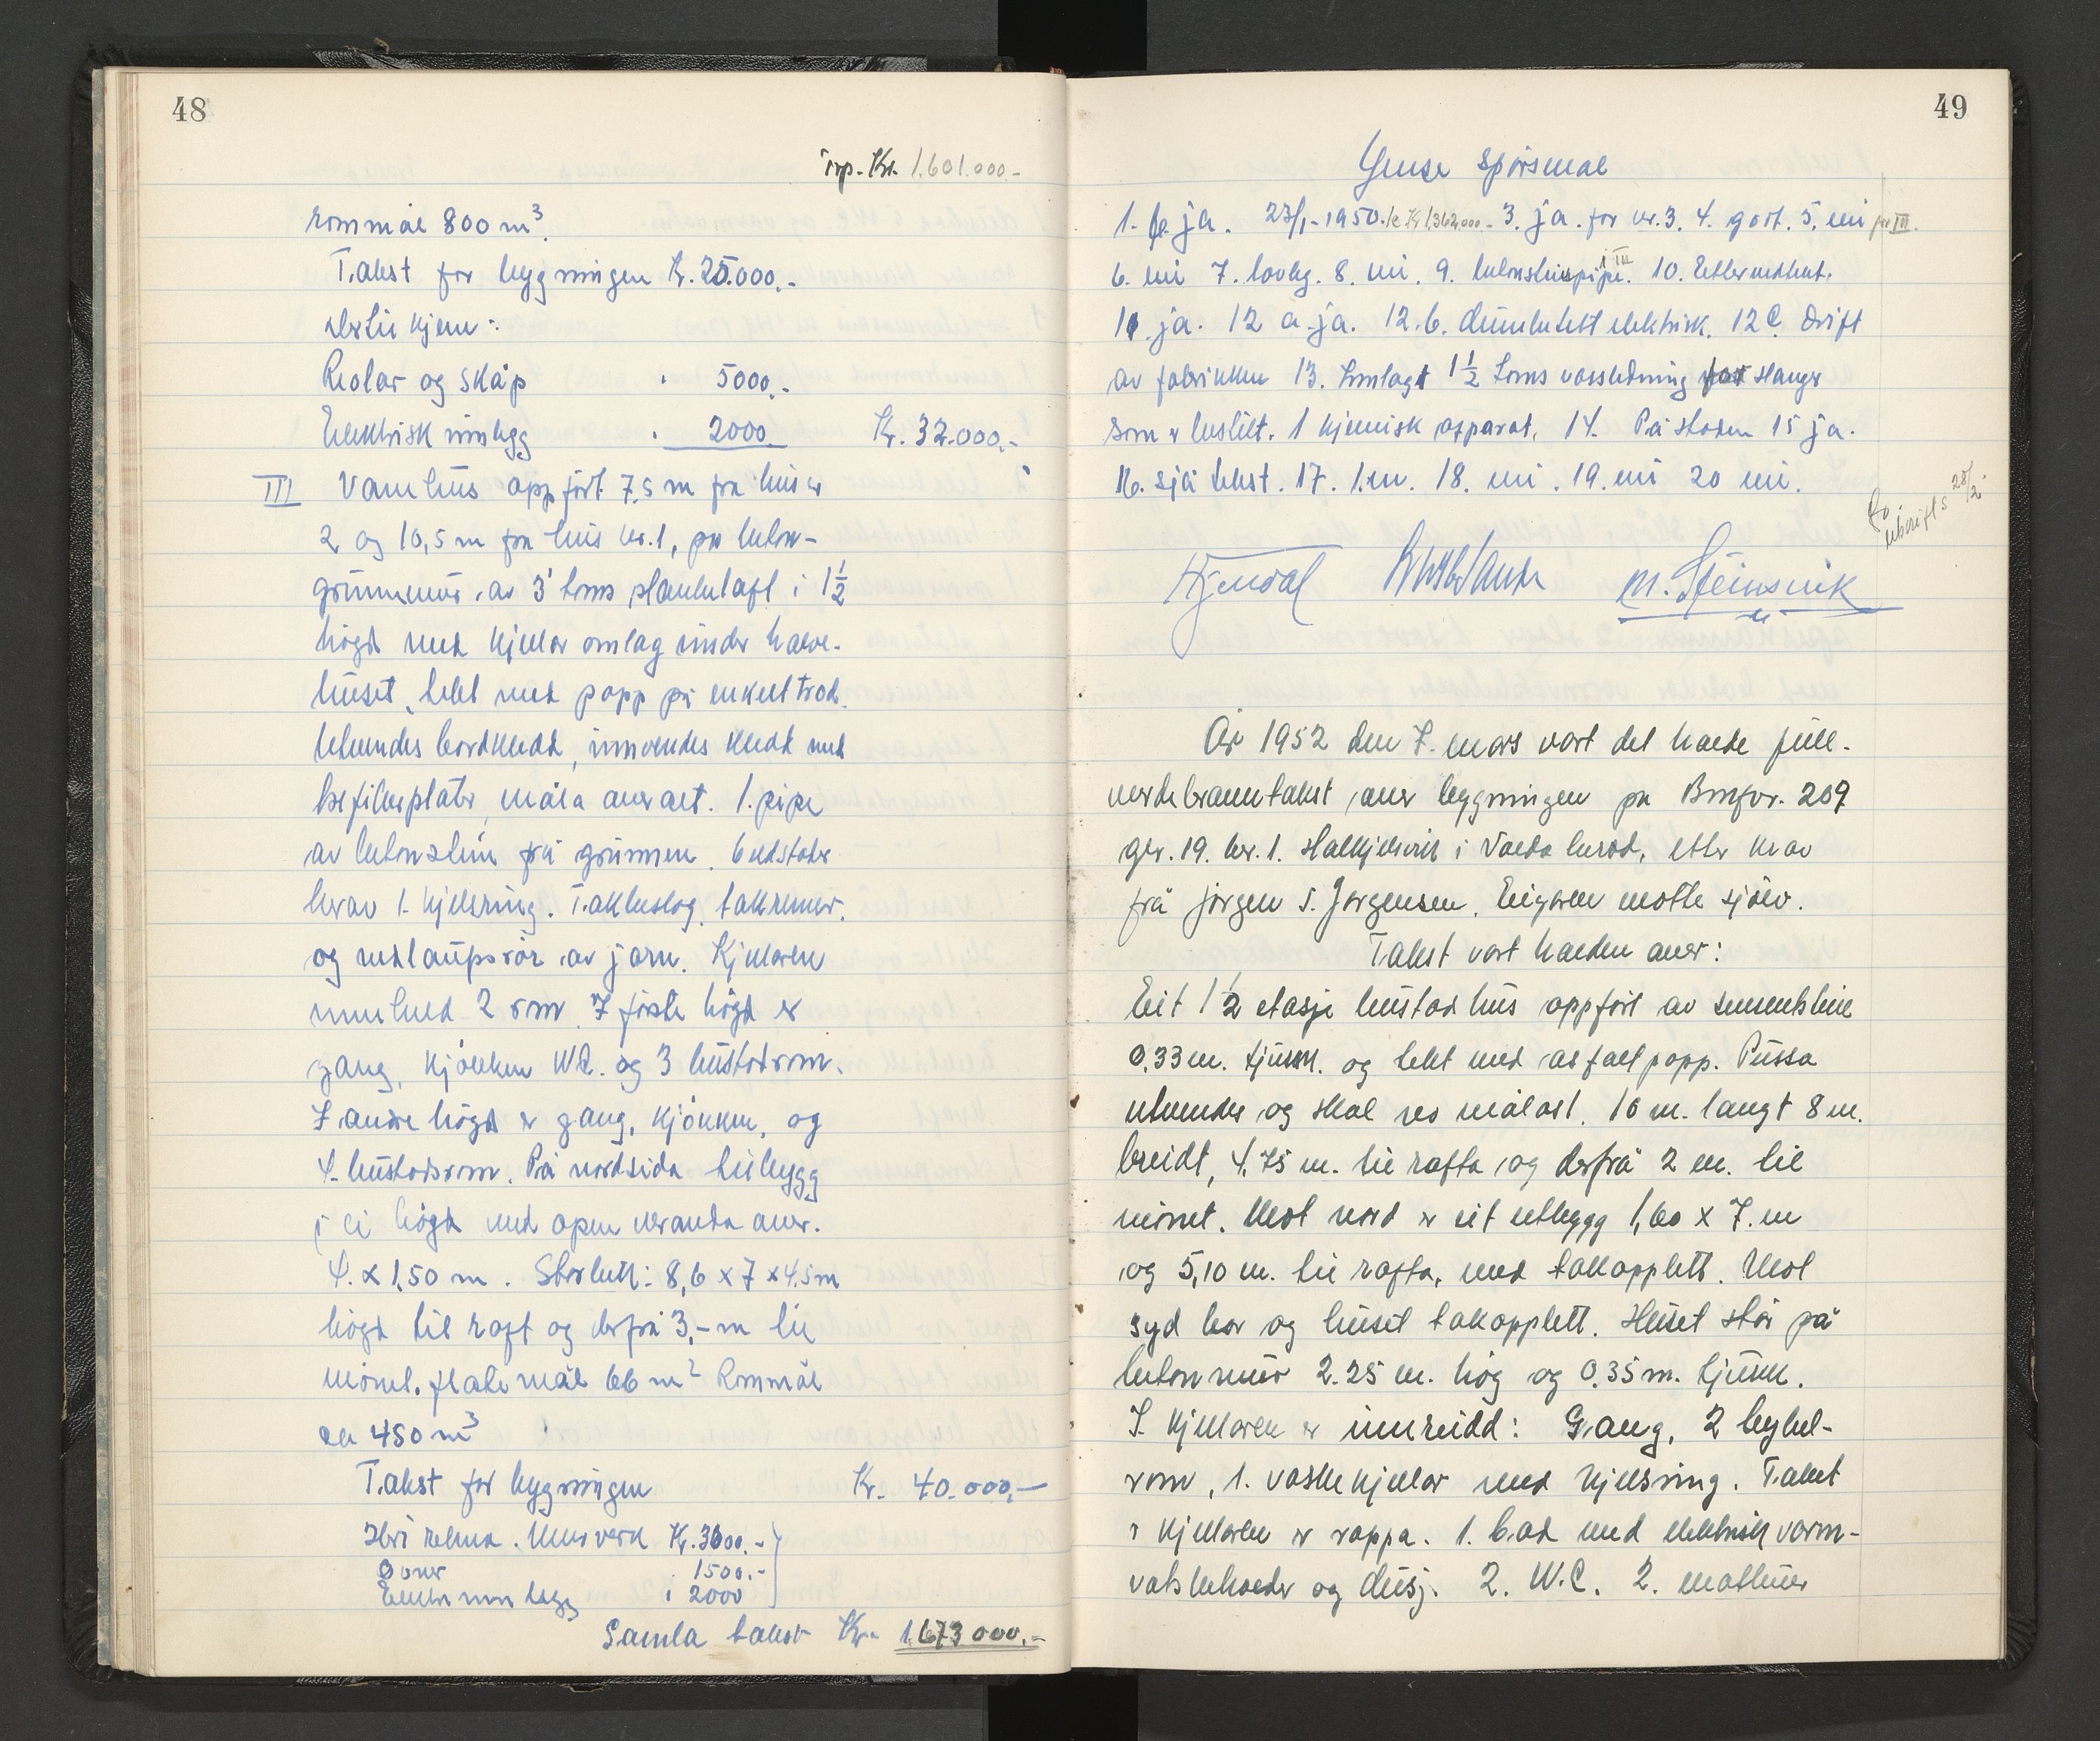 48
Trp. Kr. 1.601.000.-
rommål 800 m³.
Takst for bygningen Kr. 25.000.-
dertil kjem:
Reolar og skåp " 5000.-
Elektrisk innlegg " 2000. Kr. 32.000,-
III Vanehus oppført 7,5 m frå hus nr
2 og 10,5 m frå hus nr. 1, på beton-
grunnmur, av 3" toms planketaft i 1½
høgd med kjellar omlag under halve-
huset, tekt med papp på enkelt trod.
utvendes bordkledd, innvendes kledd med
trefiberplater, måla overalt. 1. pipe
av betonstein frå grunnen. 6 eldstader
herav 1. kjelering. Takbeslag, takrenner.
og nedlaupsrør av jarn. Kjellaren
inneheld 2 rom. I første høgd er
gang, kjøkken WC. og 3 bustadrom.
I andre høgd er gang, kjøkken, og
4. bustadsrom. På nordsida tilbygg
i ei høgd med open veranda over.
4. x 1,50 m. Storleik: 8,6 x 7 x 4,5 m
høgd til raft og derfrå 3,- m til
mønet. flatemål 66 m² Rommål
ca 450 m³
Takst for bygningen Kr. 40.000,-
Herirekna. Murverk Kr. 3600.-
Ovner " 1500.-
Elektr. innlegg " 2000
Samla takst Kr. 1.673 000.-
49
Ymse spørsmål
1. ja. 23/1-1950. Kr 1.362.000.- 3. ja. for nr. 3. 4. godt. 5. nei for III.
6. nei 7. lovleg. 8. nei. 9. betonsteinspipe i III. 10. Ettermedhut.
11 ja. 12 a. ja. 12. b. elektrisk. 12 C. Drift
av fabrikken 13. Innlagt 1½ toms vassledning for slanger
som er bestilt. 1 kjemisk apparat. 14. På staden 15 ja.
16. sjå tekst. 17. 1. m. 18. nei. 19. nei 20 nei.
utskrift s 28/2
M. Steinsvik
År 1952 den 7. mars vart det halde full-
verdebranntakst over bygningen på Brnfnr. 209
gnr. 19. bnr. 1. Halkjelsvik i Volda herad, etter krav
frå Jørgen S. Jørgensen. Eigaren møtte sjølv.
Takst vart halden over:
Eit 1½ etasje bustadhus oppført av sementstein
0,33 m. tjukk. og tekt med asfaltpapp. Pussa
utvendes og skal verta målast. 10 m. langt 8 m.
breidt, 4,75 m. til rafta og derfrå 2 m. til
mønet. Mot nord er eit utbygg 1,60 x 7. m
og 5,10 m. til rafta, med takopplett. Mot
syd har og huset takopplett. Huset står på
betonmur 2.25 m. høg og 0,35 m. tjukk.
I kjellaren er innreidd: Gang, 2 hybel-
rom, 1. vaskekjellar med kjelering. Taket
i kjellaren er rappa. 1. bad med elektrisk varm-
vatsbehaldar og dusj. 2. W.C. 2. matbuer